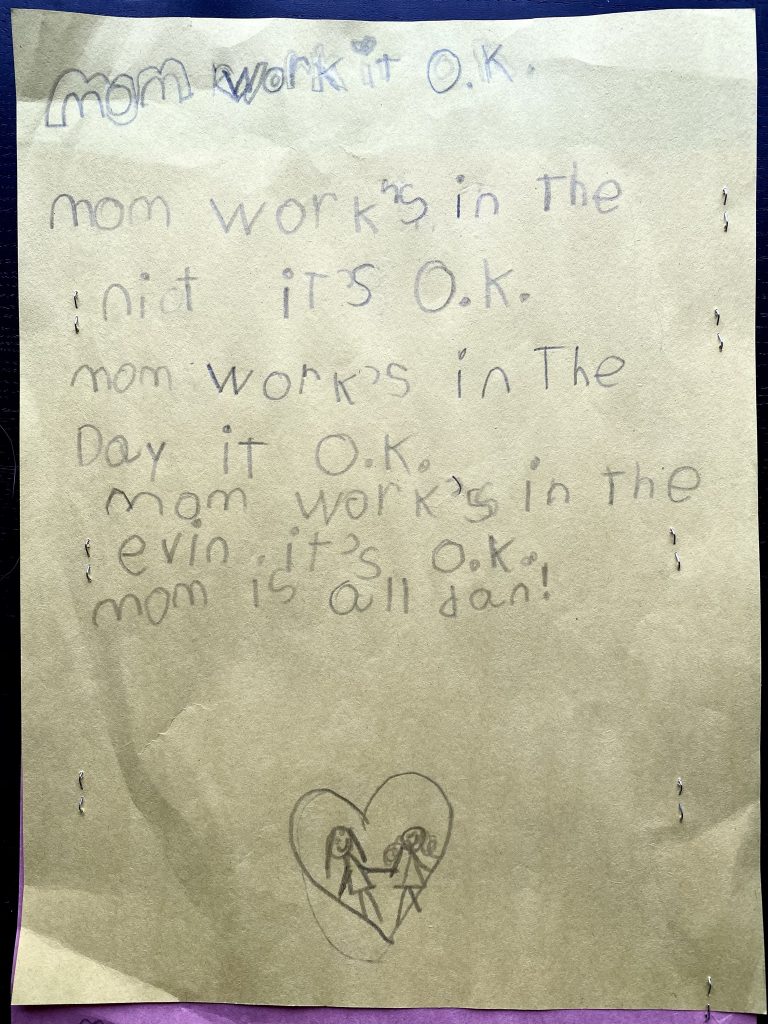 mom work it O.K.
mom work's in The
nict it's O.K.
mom work's in The
Day it O.K.
mom work's in The
evin. it's O.K.
mom is all dan!